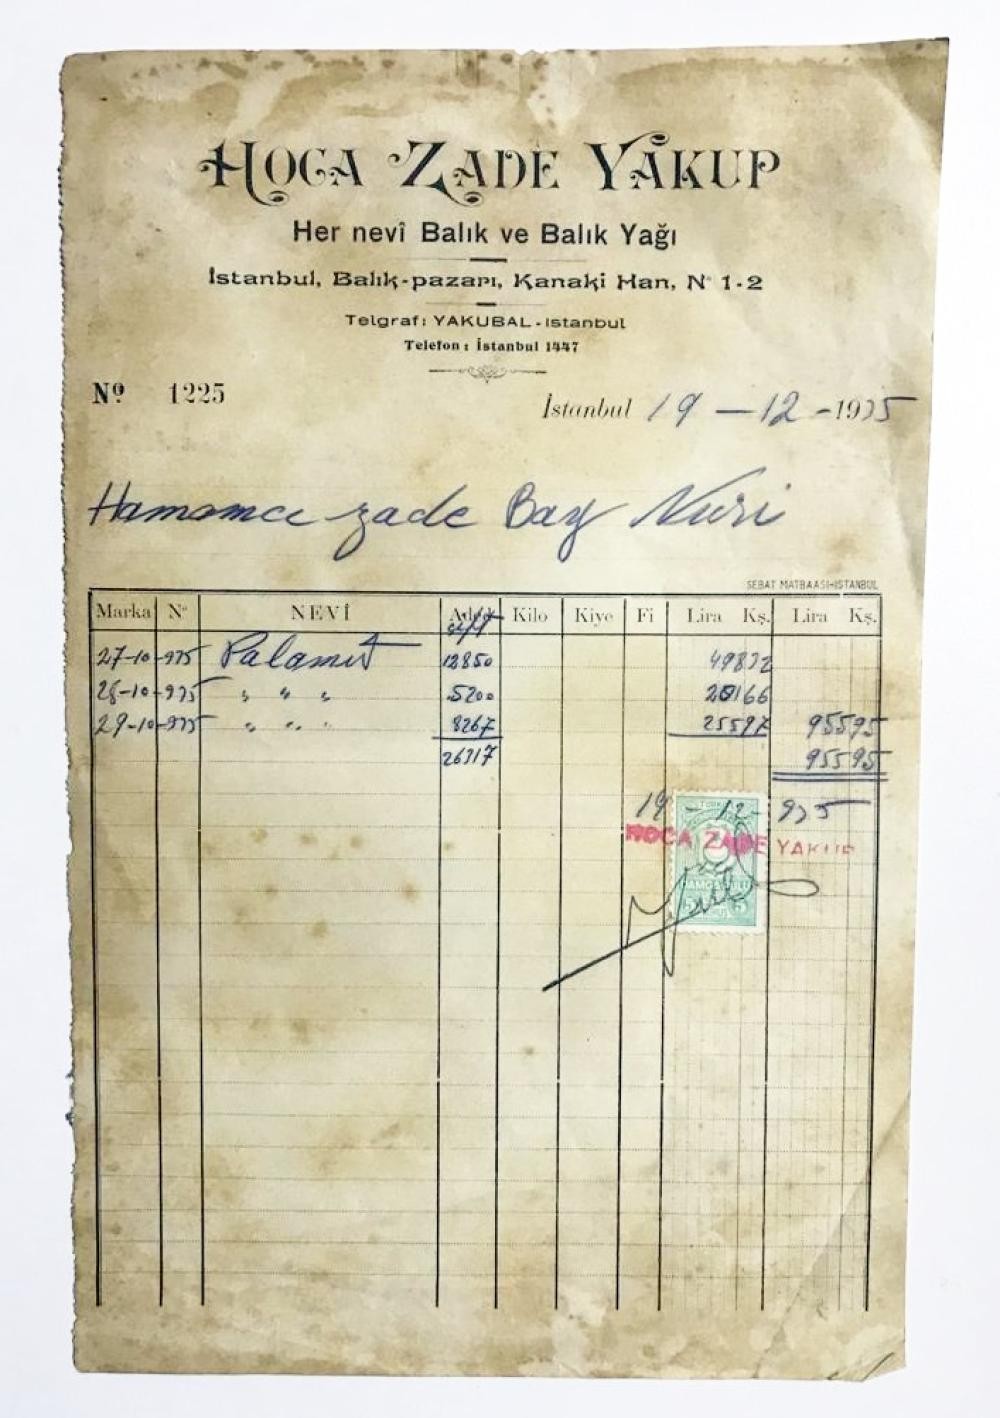 HOCA ZADE YAKUP
Her nevî Balık ve Balık Yağı
İstanbul, Balık-pazarı, Kanaki Han, N° 1-2
Telgraf: YAKUBAL-Istanbul
Telefon: İstanbul 1447
Nº 1225
İstanbul 19-12-1935
Hamamcı zade Bay Nuri
SEBAT MATBAASI-ISTANBUL
Marka N° NEVİ Aded Kilo Kiye Fi Lira Kş. Lira Kş.
27-10-935 Palamut 12850 49832
28-10-935 " " " 5200 20166
29-10-935 " " " 8267 25597 95595
26317 95595
19-12-935
HOCA ZADE YAKUP
DAMGA PULU
5 5